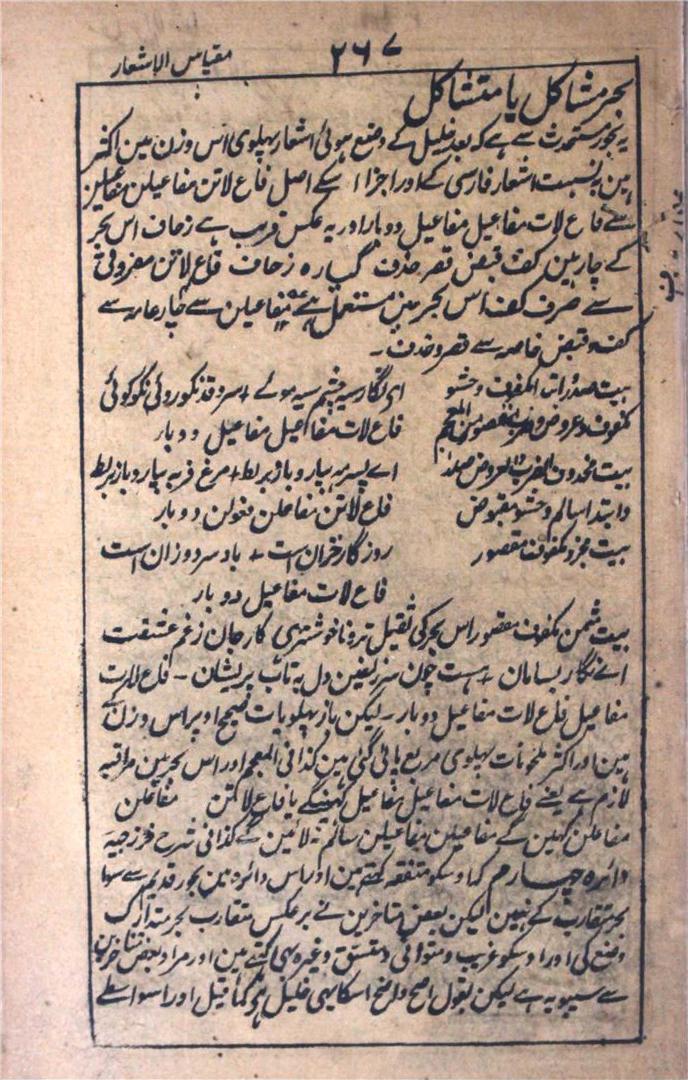 ۲۶۷
مقیاس الاشعار
بحر مشاکل یا متشاکل
یہ بحور مستحدث سے ہے کہ بعد خلیل کے وضع ہوئی اشعار پہلوی اس وزن مین اکثر
ہین بہ نسبت اشعار فارسی کے اور اجزا اسکے اصل فاع لاتن مفاعیلن مفاعیلن
سے فاع لات مفاعیل مفاعیل دوبار اور یہ عکس قریب ہے زحاف اس بحر
کے چار ہین کف قبض قصر حذف گیارہ زحاف فاع لاتن مفروقی
سے صرف کف اس بحر مین مستعمل ہے مفاعیلن سے چار عامہ سے
کف و قبض خاصہ سے قصر و حذف۔
بیت صدر ابتدا مکفوف و حشو
ای نگار سیہ چشم سیہ موئے + سرو قد نکو روئی نکو گوئی
مکفوف و عروض و ضرب مقصور من المعجم
فاع لات مفاعیل مفاعیل دوبار
بیت محذوف الضرب و العروض صدر
اے پسر مے بیار و باز بربط + مرغ فربہ بیار و باز بربط
و ابتدا سالم و حشو مقبوض
فاع لاتن مفاعلن فعولن دوبار
بیت مجزو مکفوف مقصور
روزگار خزان است + باد سرد وزان است
فاع لات مفاعیل دوبار
بیت مثمن مکفوف مقصور اس بحر کی ثقیل تر و ناخوشتر ہی کار جان ز غم عشقت
اے نگار بسامان + ہست چون سر زلفین دل بے تاب پریشان۔ فاع لات
مفاعیل فاع لات مفاعیل دوبار۔ لیکن باز پہلویات صحیح اوپر اس وزن کے
ہین اور اکثر ملحونات پہلوی مربع پائی گئی ہین کذا فی المعجم اور اس بحر مین مراقبہ
لازم ہے یعنے فاع لات مفاعیل مفاعیل کہینگے یا فاع لاتن مفاعلن
مفاعلن کہین گے مفاعیلن مفاعیلن سالم نہ لائین گے کذا فی شرح خزرجیہ
دائرہ چہارم کہ اوسکو متفقہ کہتے ہین اور اس دائرہ مین بحور قدیم سے سوا
بحر متقارب کے نہین لیکن بعض متاخرین نے برعکس متقارب بحر متدارک
وضع کی اور اوسکو غریب و متوانی و متسق وغیرہ بھی کہتے ہین اور مراد بعض متاخرین
سے سیبویہ ہے لیکن بقول اصح واضح اسکا بھی خلیل ہی کما قیل اور اسواسطے